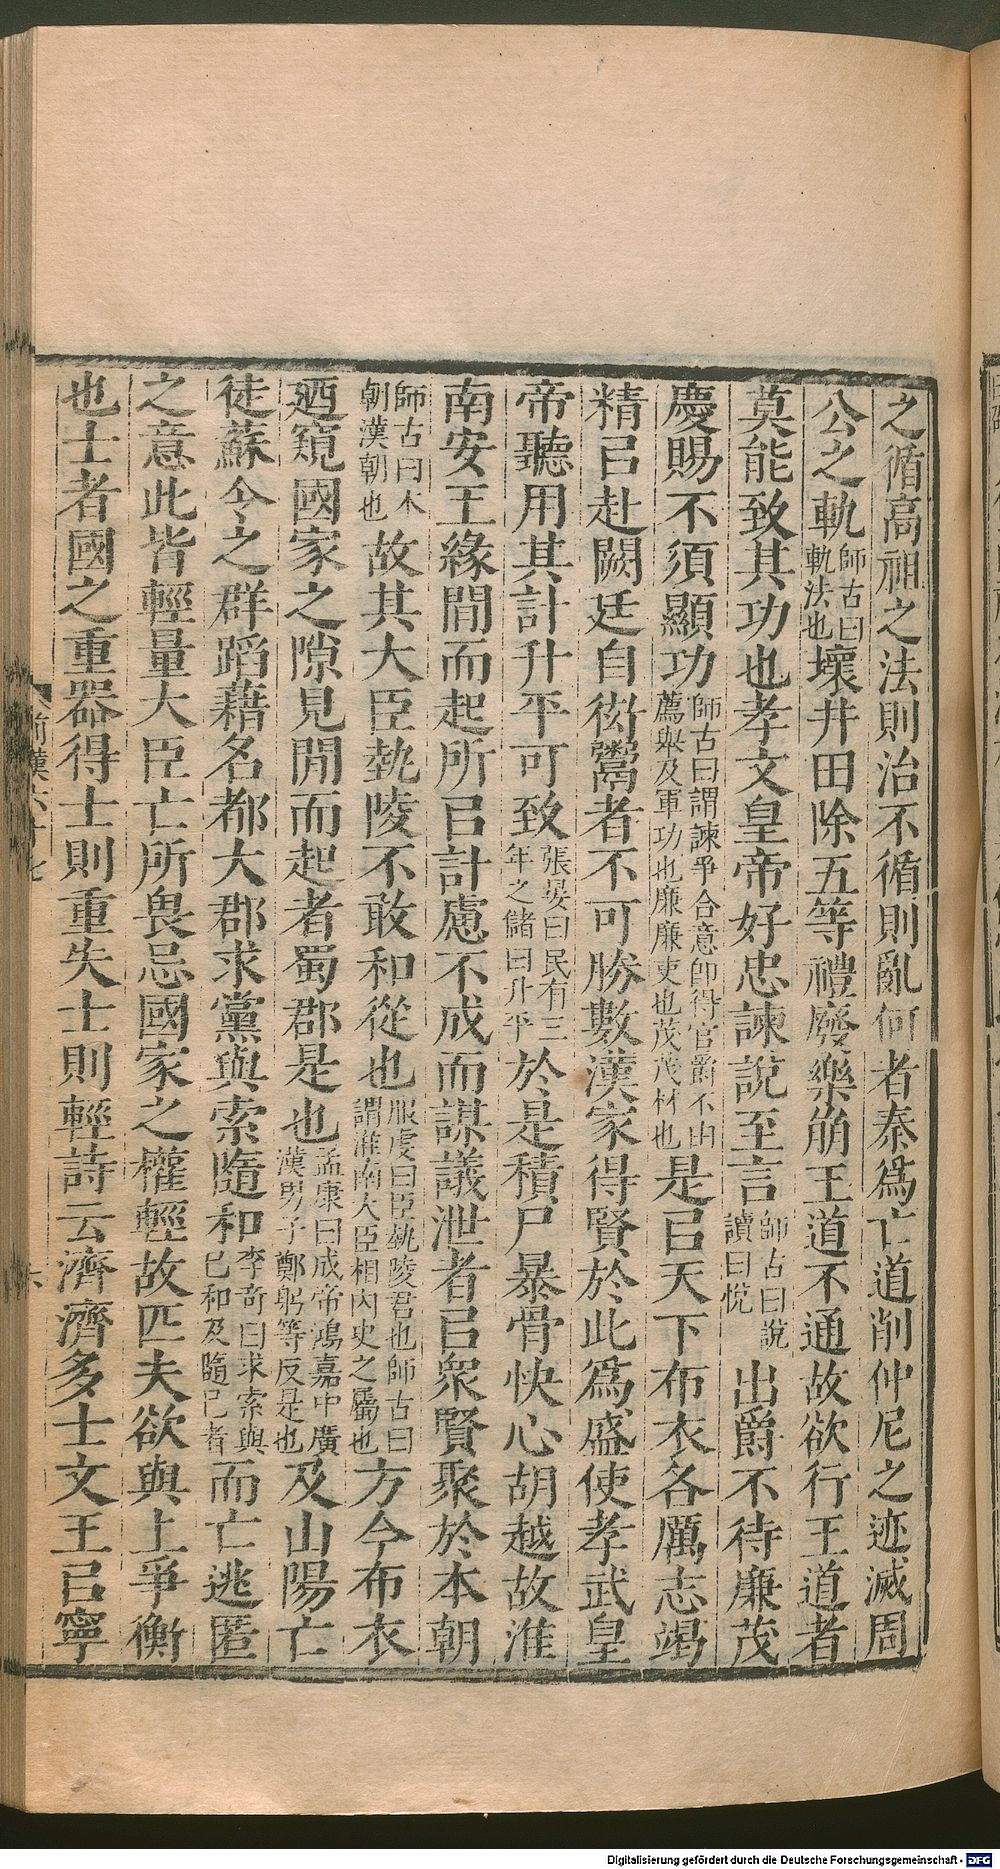 之循高祖之法則治不循則亂何者秦爲亡道削仲尼之迹滅周
公之軌師古曰軌法也壞井田除五等禮廢樂崩王道不通故欲行王道者
莫能致其功也孝文皇帝好忠諫說至言師古曰說讀曰悅出爵不待廉茂
慶賜不須顯功師古曰謂諫爭合意卽得官爵不由薦舉及軍功也廉廉吏也茂茂材也是㠯天下布衣各厲志竭
精㠯赴闕廷自衒鬻者不可勝數漢家得賢於此爲盛使孝武皇
帝聽用其計升平可致張晏曰民有三年之儲曰升平於是積尸暴骨快心胡越故淮
南安王緣間而起所㠯計慮不成而謀議泄者㠯衆賢聚於本朝
師古曰本朝漢朝也故其大臣埶陵不敢和從也服虔曰臣埶陵君也師古曰謂淮南大臣相內史之屬也方今布衣
迺窺國家之隙見閒而起者蜀郡是也孟康曰成帝鴻嘉中廣漢男子鄭躬等反是也及山陽亡
徒蘇令之群蹈藉名都大郡求黨與索隨和李奇曰求索與已和及隨已者而亡逃匿
之意此皆輕量大臣亡所畏忌國家之權輕故匹夫欲與上爭衡
也士者國之重器得士則重失士則輕詩云濟濟多士文王㠯寧
前漢六十七
六
Digitalisierung gefördert durch die Deutsche Forschungsgemeinschaft - DFG